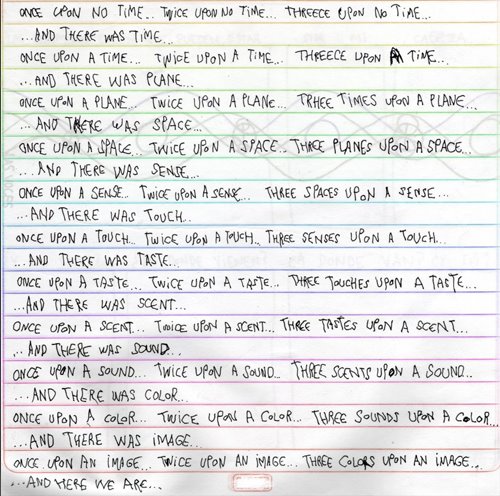 ONCE UPON NO TIME... TWICE UPON NO TIME... THREECE UPON NO TIME...
...AND THERE WAS TIME...
ONCE UPON A TIME... TWICE UPON A TIME... THREECE UPON A TIME...
...AND THERE WAS PLANE...
ONCE UPON A PLANE... TWICE UPON A PLANE... TRHEE TIMES UPON A PLANE...
...AND THERE WAS SPACE...
ONCE UPON A SPACE... TWICE UPON A SPACE... THREE PLANES UPON A SPACE...
...AND THERE WAS SENSE...
ONCE UPON A SENSE... TWICE UPON A SENSE... THREE SPACES UPON A SENSE...
...AND THERE WAS TOUCH...
ONCE UPON A TOUCH... TWICE UPON A TOUCH... THREE SENSES UPON A TOUCH...
...AND THERE WAS TASTE...
ONCE UPON A TASTE... TWICE UPON A TASTE... THREE TOUCHES UPON A TASTE...
...AND THERE WAS SCENT...
ONCE UPON A SCENT... TWICE UPON A SCENT... THREE TASTES UPON A SCENT...
...AND THERE WAS SOUND...
ONCE UPON A SOUND... TWICE UPON A SOUND... THREE SCENTS UPON A SOUND...
...AND THERE WAS COLOR...
ONCE UPON A COLOR... TWICE UPON A COLOR... THREE SOUNDS UPON A COLOR...
...AND THERE WAS IMAGE...
ONCE UPON AN IMAGE... TWICE UPON AN IMAGE... THREE COLORS UPON AN IMAGE...
...AND HERE WE ARE...